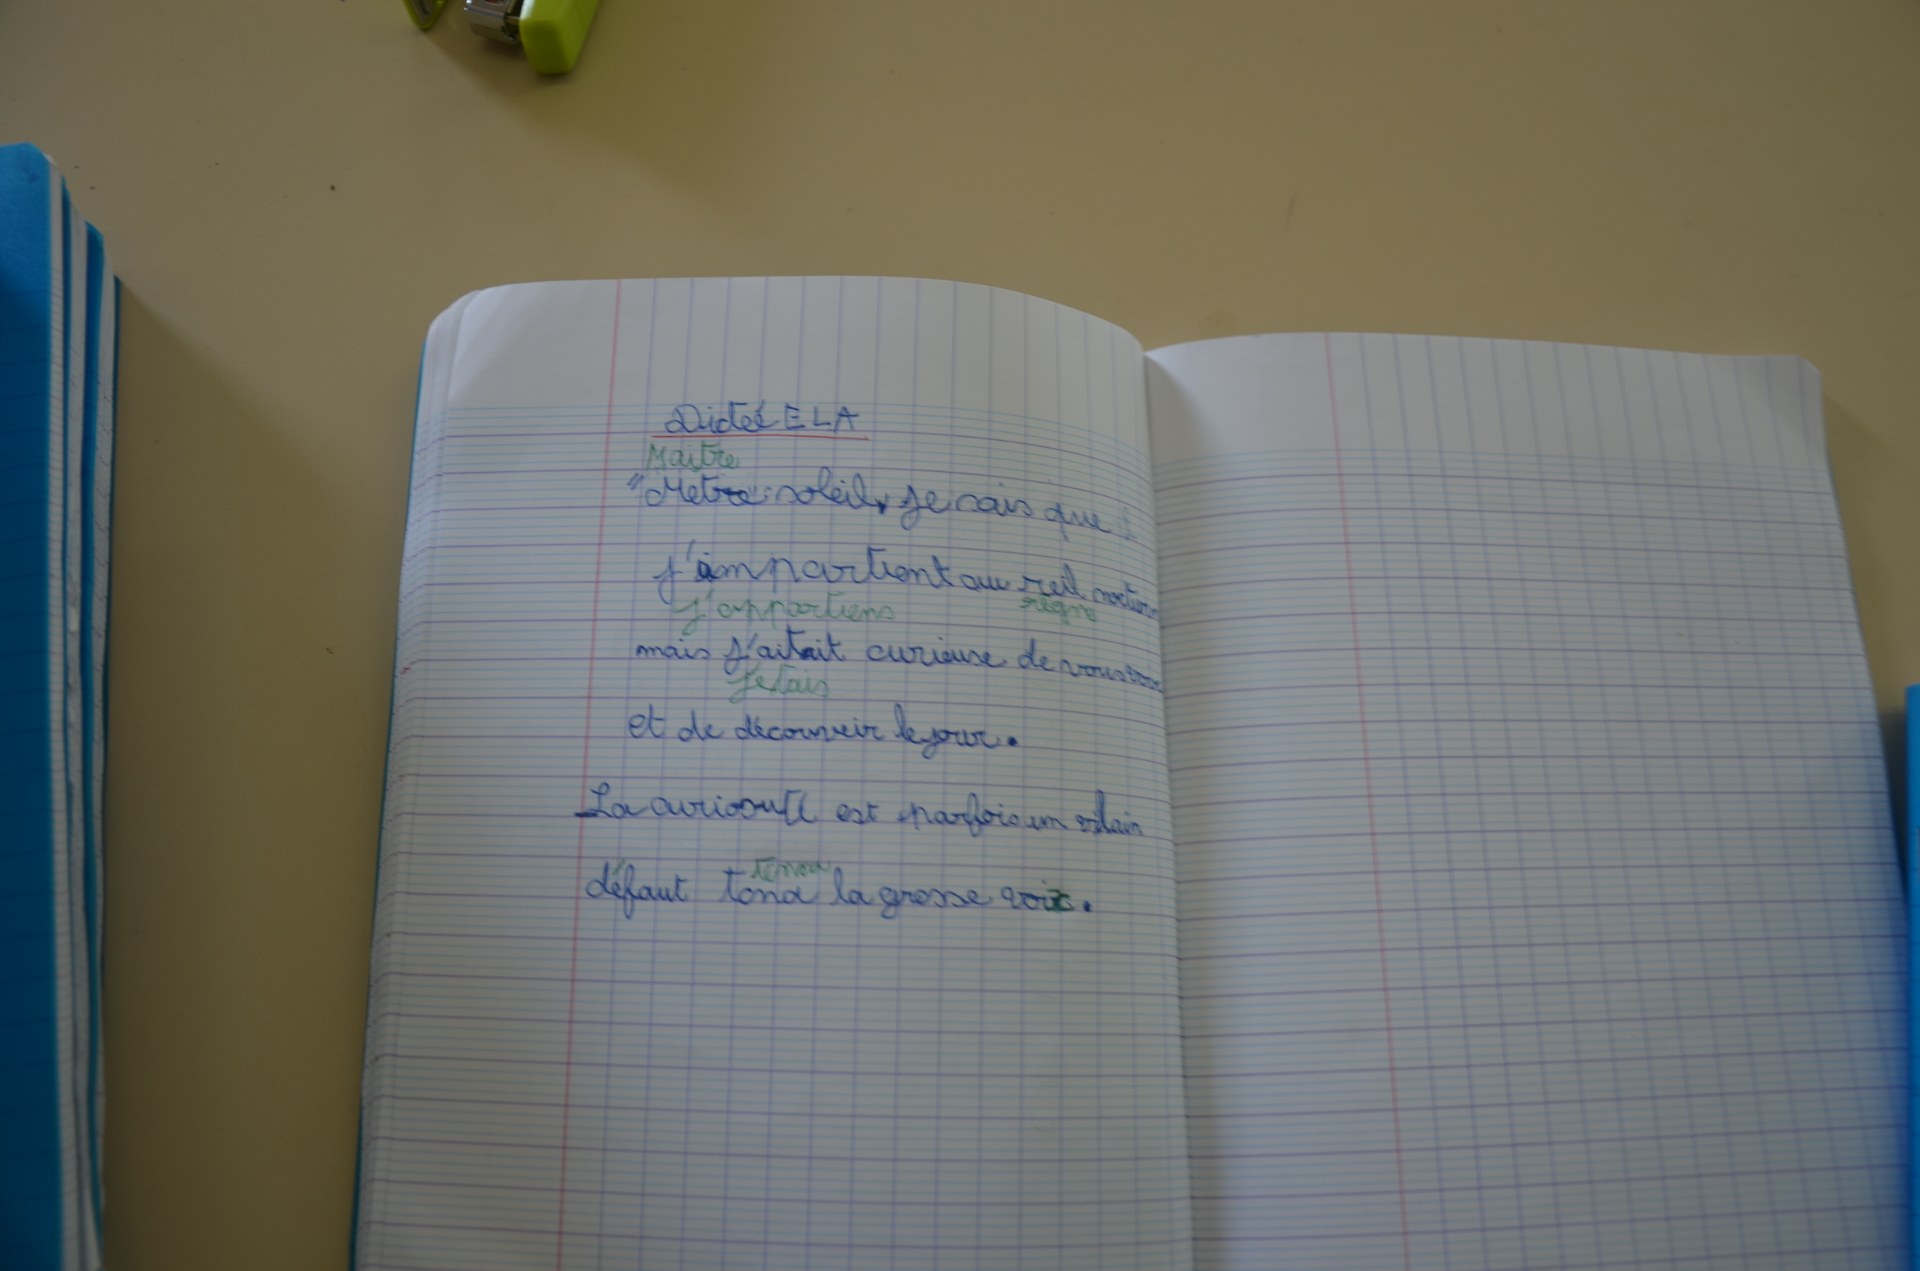 Dicteé ELA
Maitre
"Metre soleil, je sais que
j'impartient au reil
j'appartiens règne
mais j'aitait curieuse de vous
j'etais
et de découvrir le jour.
La curiosité est parfois un vilain
défaut tona la grosse voix.